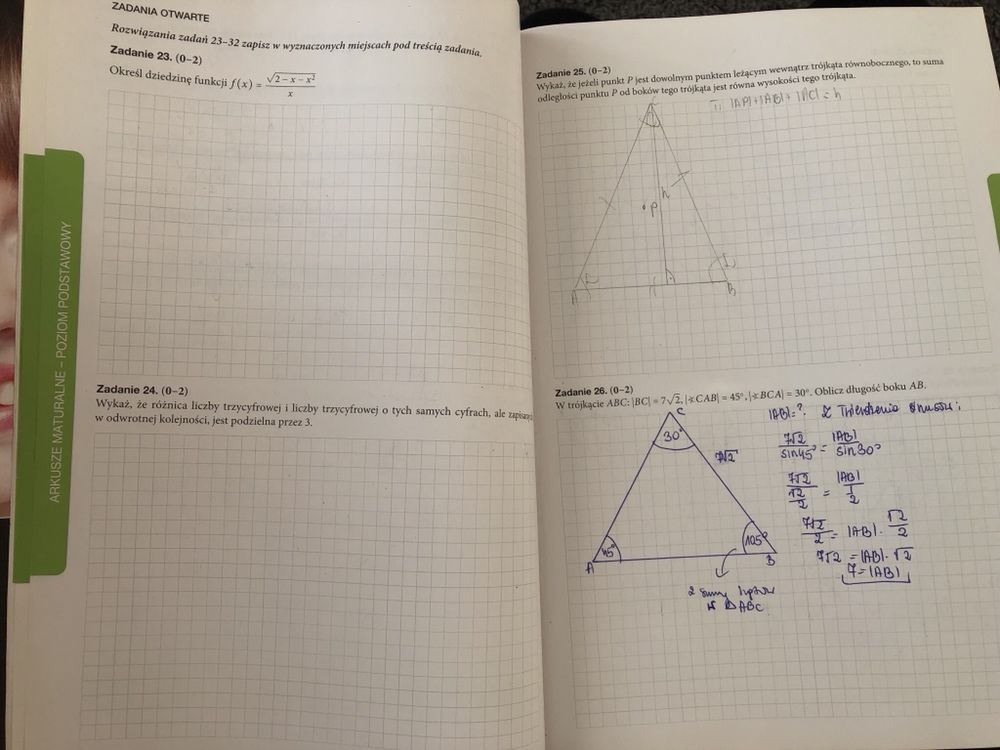 ZADANIA OTWARTE
Rozwiązania zadań 23–32 zapisz w wyznaczonych miejscach pod treścią zadania.
Zadanie 23. (0–2)
Określ dziedzinę funkcji f(x) = √(2 – x – x²) / x
ARKUSZE MATURALNE – POZIOM PODSTAWOWY
Zadanie 24. (0–2)
Wykaż, że różnica liczby trzycyfrowej i liczby trzycyfrowej o tych samych cyfrach, ale zapisanej
w odwrotnej kolejności, jest podzielna przez 3.
Zadanie 25. (0–2)
Wykaż, że jeżeli punkt P jest dowolnym punktem leżącym wewnątrz trójkąta równobocznego, to suma
odległości punktu P od boków tego trójkąta jest równa wysokości tego trójkąta.
T: |AP|+|AB|+|AC| = h
h
P
A
B
Zadanie 26. (0–2)
W trójkącie ABC: |BC| = 7√2, |∢CAB| = 45°, |∢BCA| = 30°. Oblicz długość boku AB.
|AB|=? Z Twierdzenia sinusów:
C
30°
7√2
45°
105°
A
B
z sumy kątów
w △ABC
7√2/sin45° = |AB|/sin30°
7√2/(√2/2) = |AB|/(1/2)
7√2/2 = |AB| · √2/2
7√2 = |AB| · √2
7 = |AB|